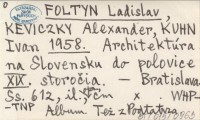 FOLTYN Ladislav,
KEVICZKY Alexander, KUHN
Ivan 1958. Architektúra
na Slovensku do polovice
XIX. storočia. — Bratislava
Ss. 612, il. cm × WHP-
-TNP
Album Tež z Podtatra